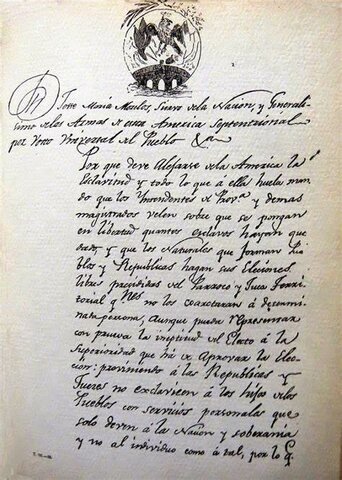 Dn Jose Maria Morelos, Siervo dela Nacion, y Generali-
simo delas Armas de esta America Septentrional
por Voto Universal del Pueblo &a
Por que deve Alejarse dela America la
Esclavitud y todo lo que á ella huela man-
do que los Yntendentes de Prova y demas
magistrados velen sobre que se pongan
en livertad quantos esclavos hayan que-
dado, y que los Naturales que forman Pue-
blos y Republicas hagan sus Elecciones
libres precididas del Parroco y Juez Territ-
torial qnes no los coartaran á determi-
nata persona, aunque pueda representar
con prueva la ineptitud del Electo á la
Superioridad que há de Aprovar la Elec-
cion: previniendo á las Republicas y
Jueces no esclavicen á los hijos delos
Pueblos con servicios personales que
solo deven á la Nacion y soverania
y no al individuo como á tal, por lo q.